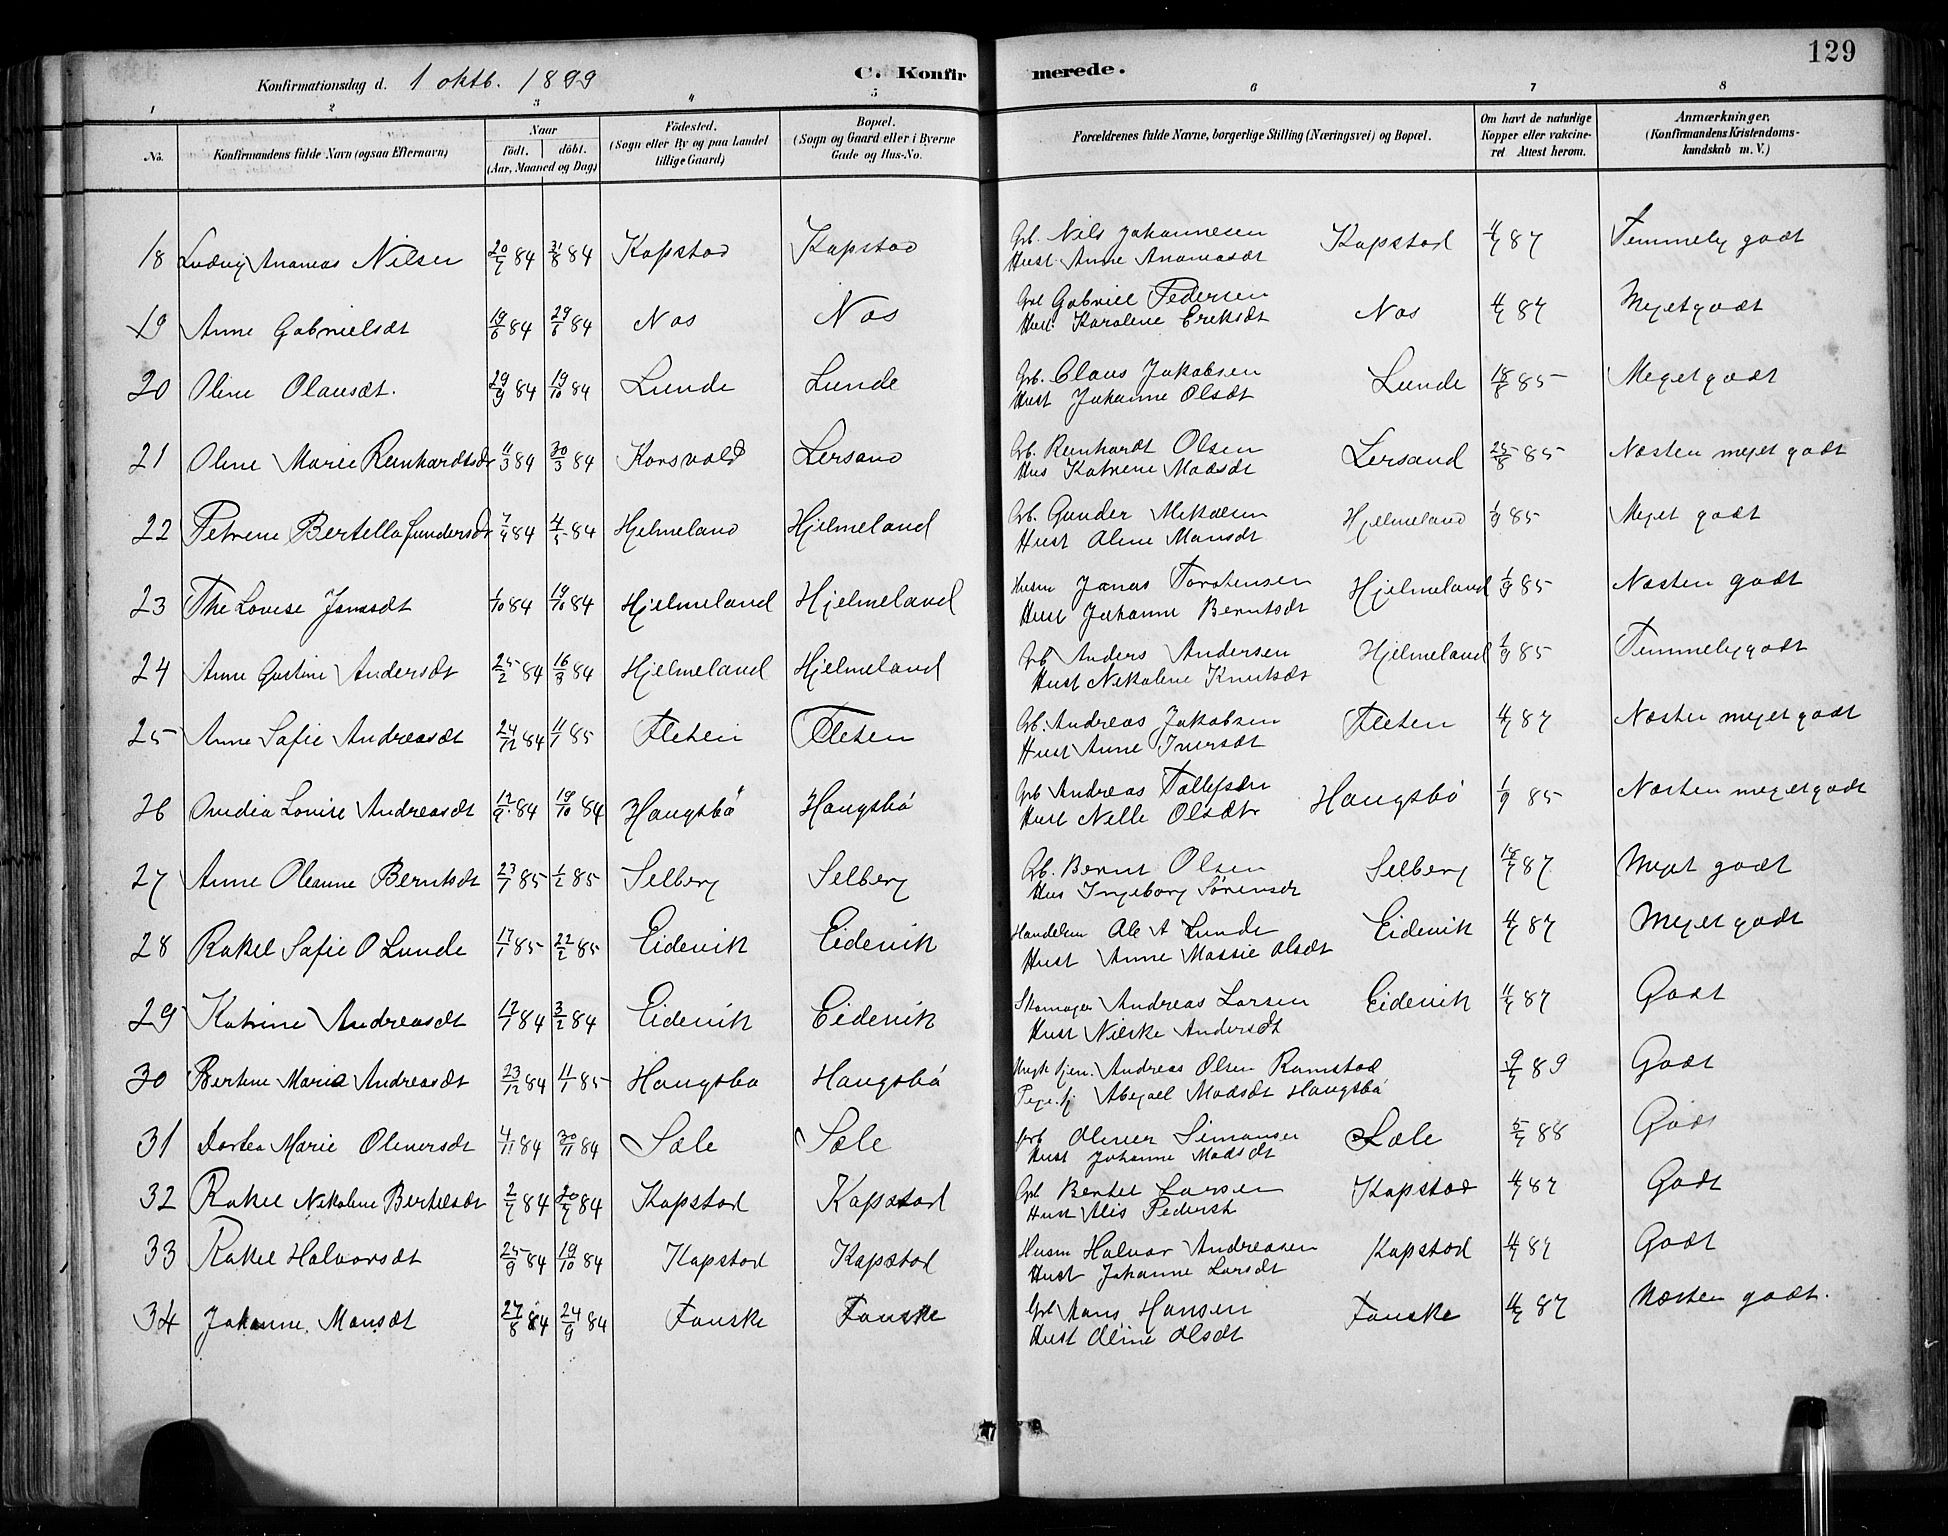 129
Konfirmationsdag d. 1 oktb. 1899 C. Konfirmerede.
1 2 3 4 5 6 7 8
No. Konfirmandens fulde Navn (ogsaa Efternavn) Naar födt. döbt. (Aar, Maaned og Dag) Födested. (Sogn eller By og paa Landet tillige Gaard) Bopæl. (Sogn og Gaard eller i Byerne Gade og Hus-No. Forældrenes fulde Navne, borgerlige Stilling (Næringsvei) og Bopæl. Om havt de naturlige Kopper eller vakcineret Attest herom. Anmærkninger, (Konfirmandens Kristendomskundskab m. V.)
18 Ludvig Ananias Nilsen 20/7 84 31/8 84 Kapstad Kapstad Grb. Nils Johannesen Kapstad 4/7 87 Temmelig godt
Hust. Anne Ananiasdt
19 Anne Gabrielsdt 19/6 84 29/6 84 Nos Nos Grb Gabriel Pedersen Nos 4/7 87 Meget godt
Hust. Karoline Eriksdt
20 Oline Olausdt. 29/9 84 19/10 84 Lunde Lunde Grb. Claus Jakobsen Lunde 18/8 85 Meget godt
Hust Johanne Olsdt
21 Oline Marie Reinhardtsdt 11/3 84 30/3 84 Korsvold Lersand Grb. Reinhardt Olsen Lersand 25/8 85 Næsten meget godt
Hus Katrine Madsdt
22 Petrine Bertella Gundersdt 7/4 84 4/5 84 Hjelmeland Hjelmeland Grb. Gunder Mikalsen Hjelmeland 1/9 85 Meget godt
Hust Oline Monsdt
23 The Lovise Jonasdt 1/10 84 19/10 84 Hjelmeland Hjelmeland Husm Jonas Torstensen Hjelmeland 1/9 85 Næsten godt
Hust Johanne Berntsdt
24 Anne Gustine Andersdt 25/2 84 16/3 84 Hjelmeland Hjelmeland Grb Anders Andersen Hjelmeland 1/9 85 Temmelig godt
Hust Nekoline Knutsdt
25 Anne Sofie Andreasdt 24/12 84 11/1 85 Fleten Fleten Grb. Andreas Jakobsen Fleten 4/7 87 Næsten meget godt
Hust Anne Iversdt
26 Ovidia Lovise Andreasdt 12/9 84 19/10 84 Haugsbö Haugsbö Grb Andreas Tollefsen Haugsbö 1/9 85 Næsten meget godt
Hust Nelle Olsdt
27 Anne Oleanne Berntsdt 23/1 85 1/2 85 Selberg Selberg Grb. Bernt Olsen Selberg 18/7 87 Meget godt
Hus Ingeborg Sörensdt
28 Rakel Sofie O Lunde 17/1 85 22/2 85 Eidevik Eidevik Handelsm Ole A Lunde Eidevik 4/7 87 Meget godt
Hust Anne Massie Olsdt
29 Katrine Andreasdt 12/1 84 3/2 84 Eidevik Eidevik Skomager Andreas Larsen Eidevik 11/7 87 Godt
Hust Niske Andersdt
30 Bertine Maria Andreasdt 23/12 84 11/1 85 Haugsbø Haugsbö Andreas Olsen Ramstad 9/7 89 Godt
Abegael Madsdt Haugsbö
31 Dortea Marie Oliversdt 4/11 84 30/11 84 Sæle Sæle Grb Oliver Simonsen Sæle 5/7 88 Godt
Hust Johanne Madsdt
32 Rakel Nekoline Bertelsdt 2/7 84 20/7 84 Kapstad Kapstad Grb Bertel Larsen Kapstad 4/7 87 Godt
Hust Alis Pedersdt
33 Rakel Halvorsdt 25/9 84 19/10 84 Kapstad Kapstad Husm Halvor Andreasen Kapstad 4/7 87 Godt
Hust Johanne Larsdt
34 Johanne Monsdt 27/8 84 24/9 84 Fonske Fonske Grb Mons Hansen Fonske 4/7 87 Næsten godt.
Hust Oline Olsdt